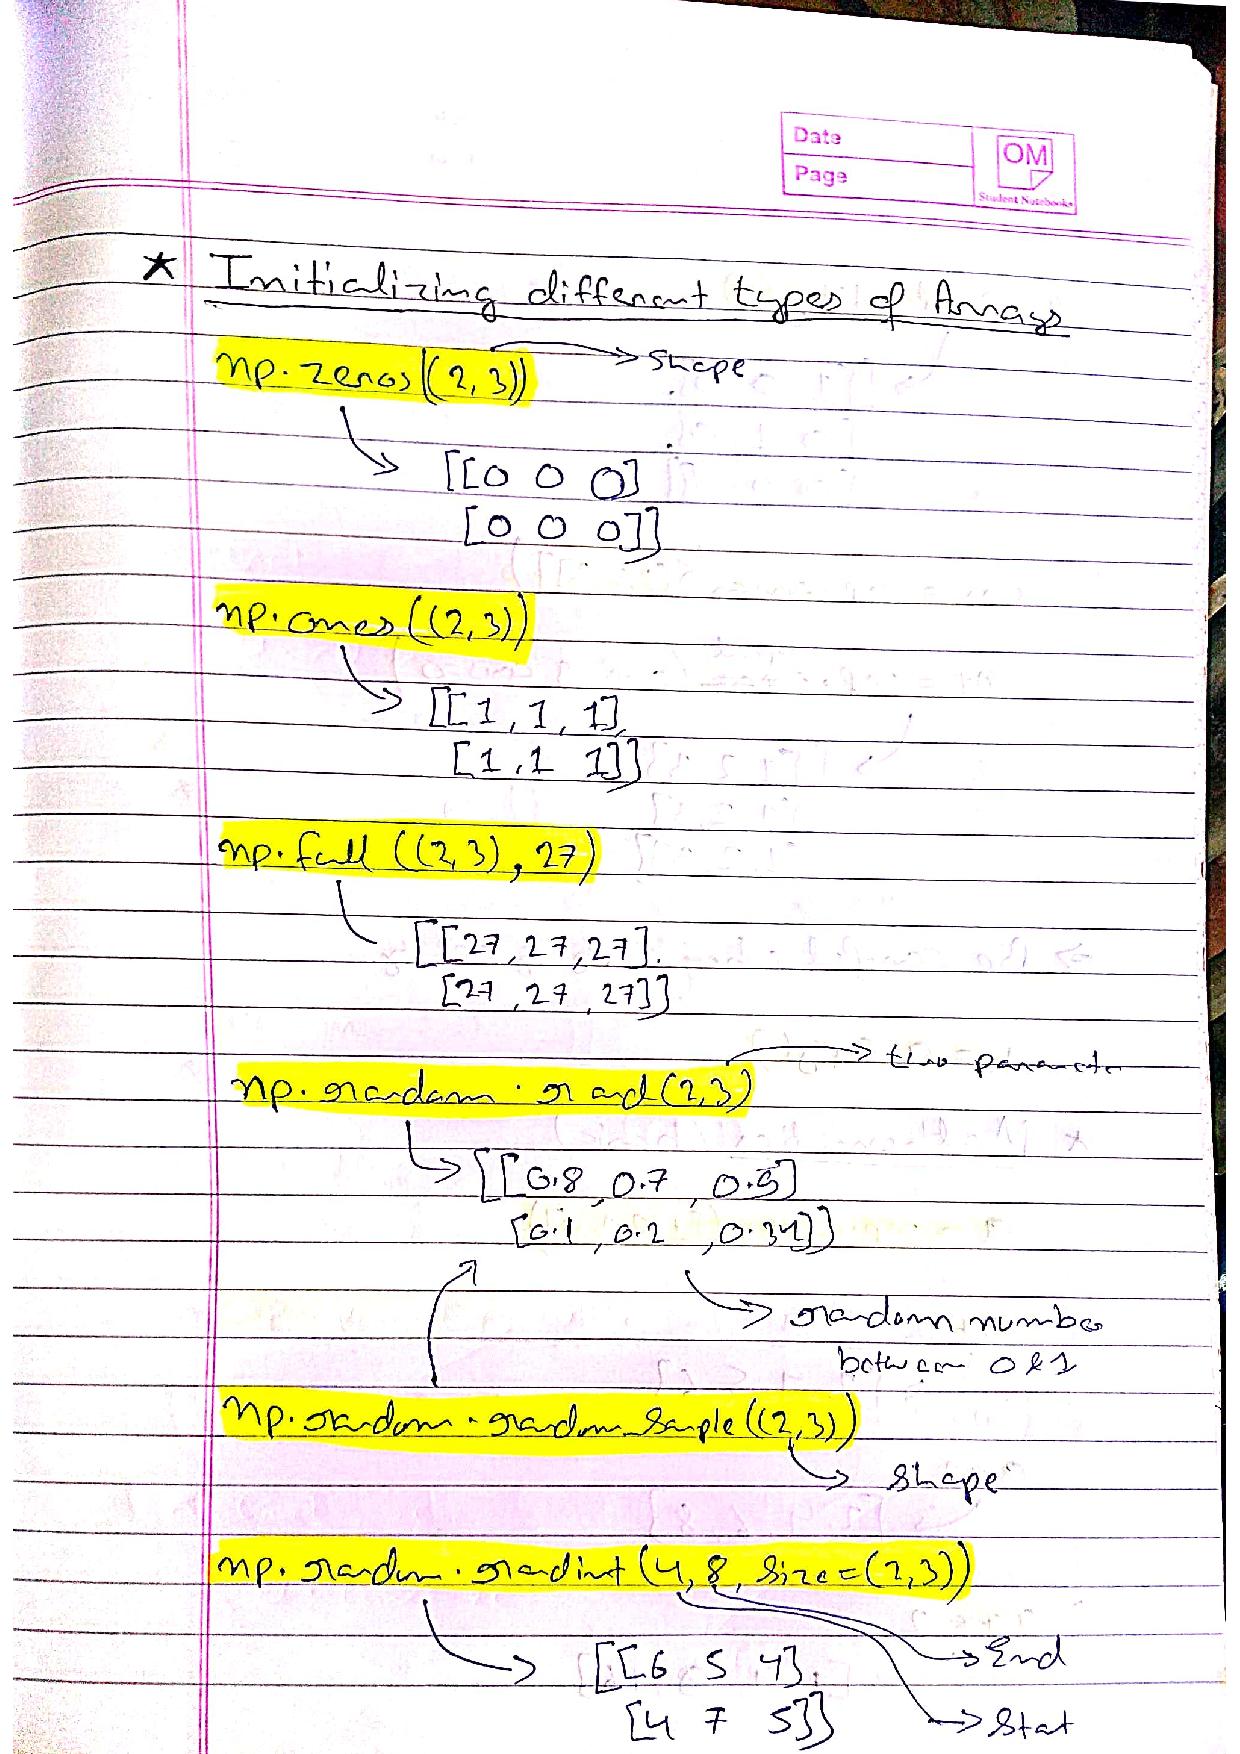 Date
Page
OM
Student Notebooks
★ Initializing different types of Arrays
np.zeros((2,3)) → Shape
[[0 0 0]
[0 0 0]]
np.ones((2,3))
[[1, 1, 1],
[1, 1 1]]
np.full((2,3), 27)
[[27, 27, 27].
[27, 27, 27]]
np.random.rand(2,3) → two parameter
[[0.8, 0.7, 0.5]
[0.1, 0.2, 0.34]]
random number
between 0 & 1
np.random.random_sample((2,3))
shape
np.random.randint(4, 8, size=(2,3))
[[6 5 4], → End
[4 7 5]] → Stat